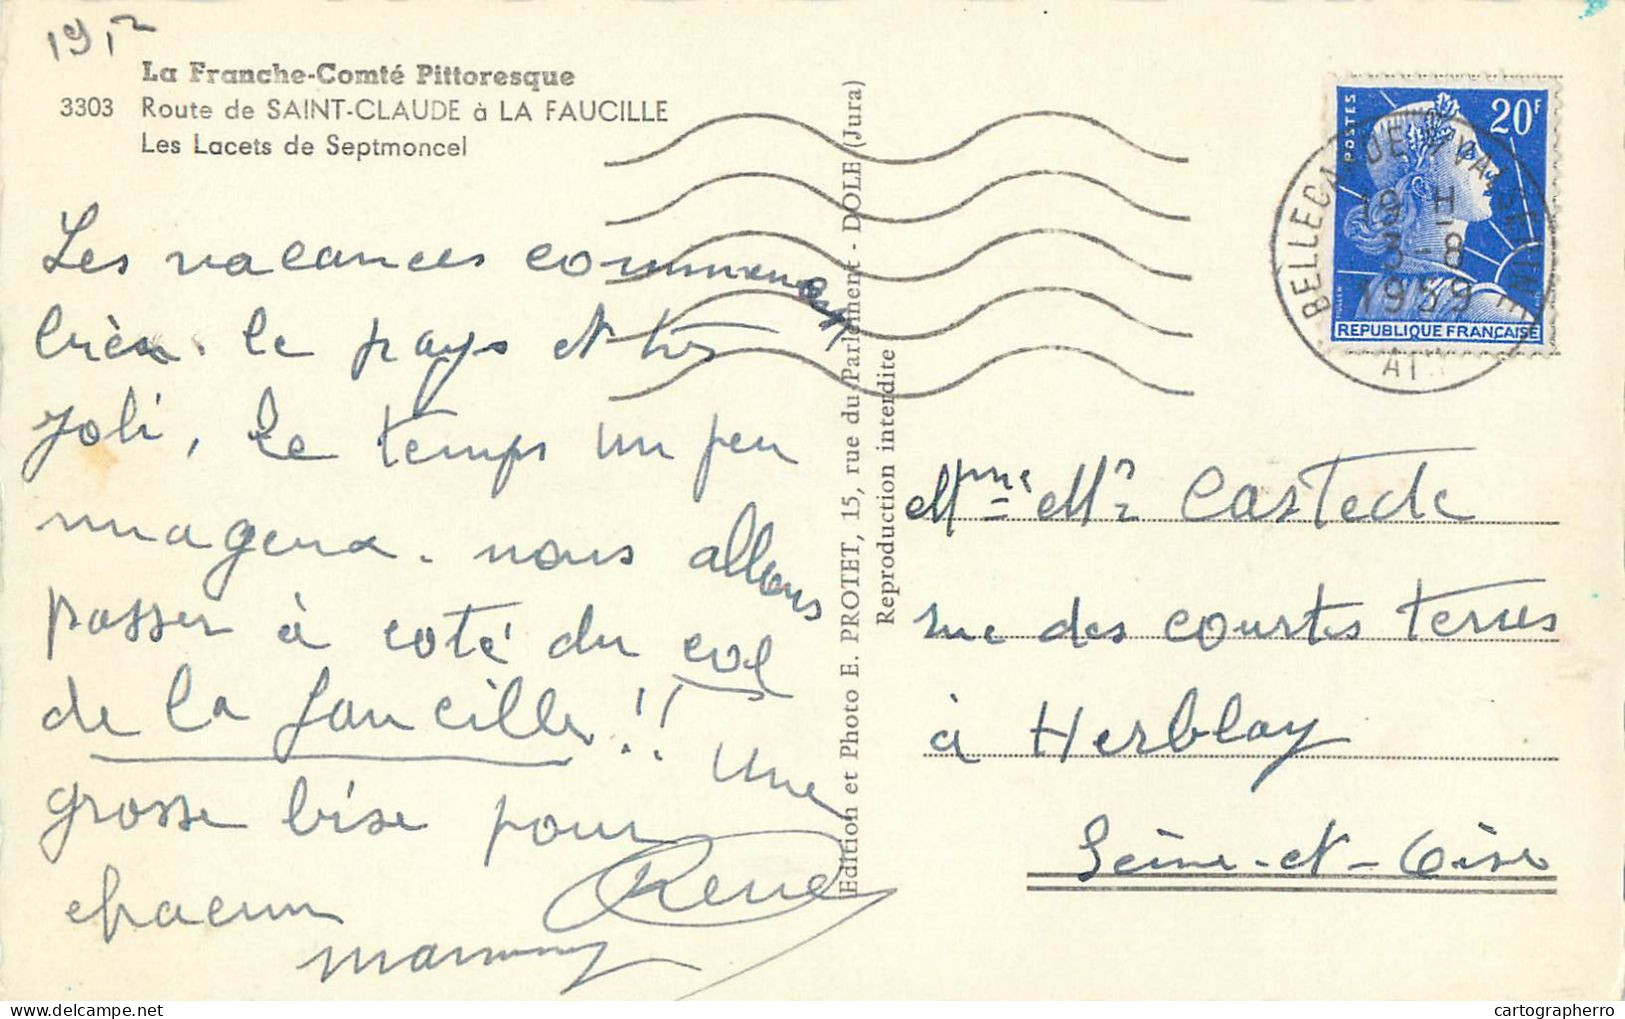 La Franche-Comté Pittoresque
3303 Route de SAINT-CLAUDE à LA FAUCILLE
Les Lacets de Septmoncel
Les vacances commencent
bien. le pays est très
joli, Le temps un peu
nuageux. nous allons
passer à coté du col
de la faucille!! Une
grosse bise pour
chacun
René
mammy
Edition et Photo E. PROTET, 15, rue du Parlement - DOLE (Jura)
Reproduction interdite
POSTES
20F
REPUBLIQUE FRANÇAISE
BELLEGARDE
19 H
3-8
1959
AIN
Mme Mr Castede
rue des courtes terres
à Herblay
Seine-et-Oise
cartographerro